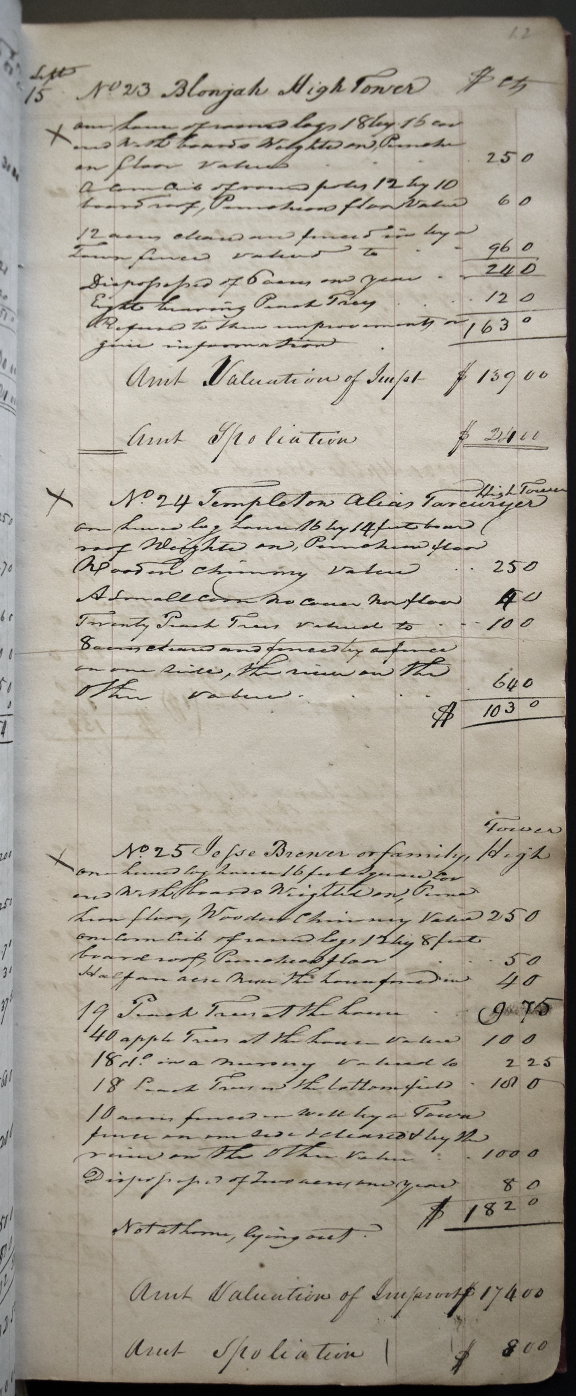 12
Sept
15 No 23 Blonjah High Tower $ cts
X one house of round logs 18 by 16 cov
ered with boards Weighted on, Punche
on floor value 250
A Corn Crib of round poles 12 by 10
board roof, Puncheon floor Value 60
12 acres cleared and fenced in by a
Town fence valued to 960
Dispossessed of 6 acres one year 240
Eight bearing Peach Trees 120
Refused to show improvements or 1630
give information
Amt Valuation of Impt $ 13900
Amt Spoliation $ 2400
High Tower
X No 24 Templeton Alias
one hewed log house 16 by 14 feet board
roof Weighted on, Puncheon floor
Wooden Chimney Value 250
A Small Corn No cover Nor floor 40
Twenty Peach Trees valued to 100
8 acres cleared and fenced by a fence
on one side, the river on the
Other value 640
$ 1030
Tower
X No 25 Jesse Brewer or family, High
one hewed log house 16 feet square, cov
ered With boards Weighted on, Punc
heon floor, Wooden Chimney Value 250
one Corn Crib of round logs 12 by 8 feet
board roof, Puncheon floor 50
Half an acre Near the house fenced in 40
19 Peach Trees at the house 9 75
40 apple Trees at the house Value 100
18 do in a nursery Valued to 2 25
18 Peach Trees in the bottom field 100
10 acres fenced in well by a Town
fence on one side & cleared & by the
river on the Other Value 1000
Dispossessed of Two acres one year 80
$ 1820
Not at home, lying out
Amt Valuation of Improvt $ 17400
Amt Spoliation $ 800